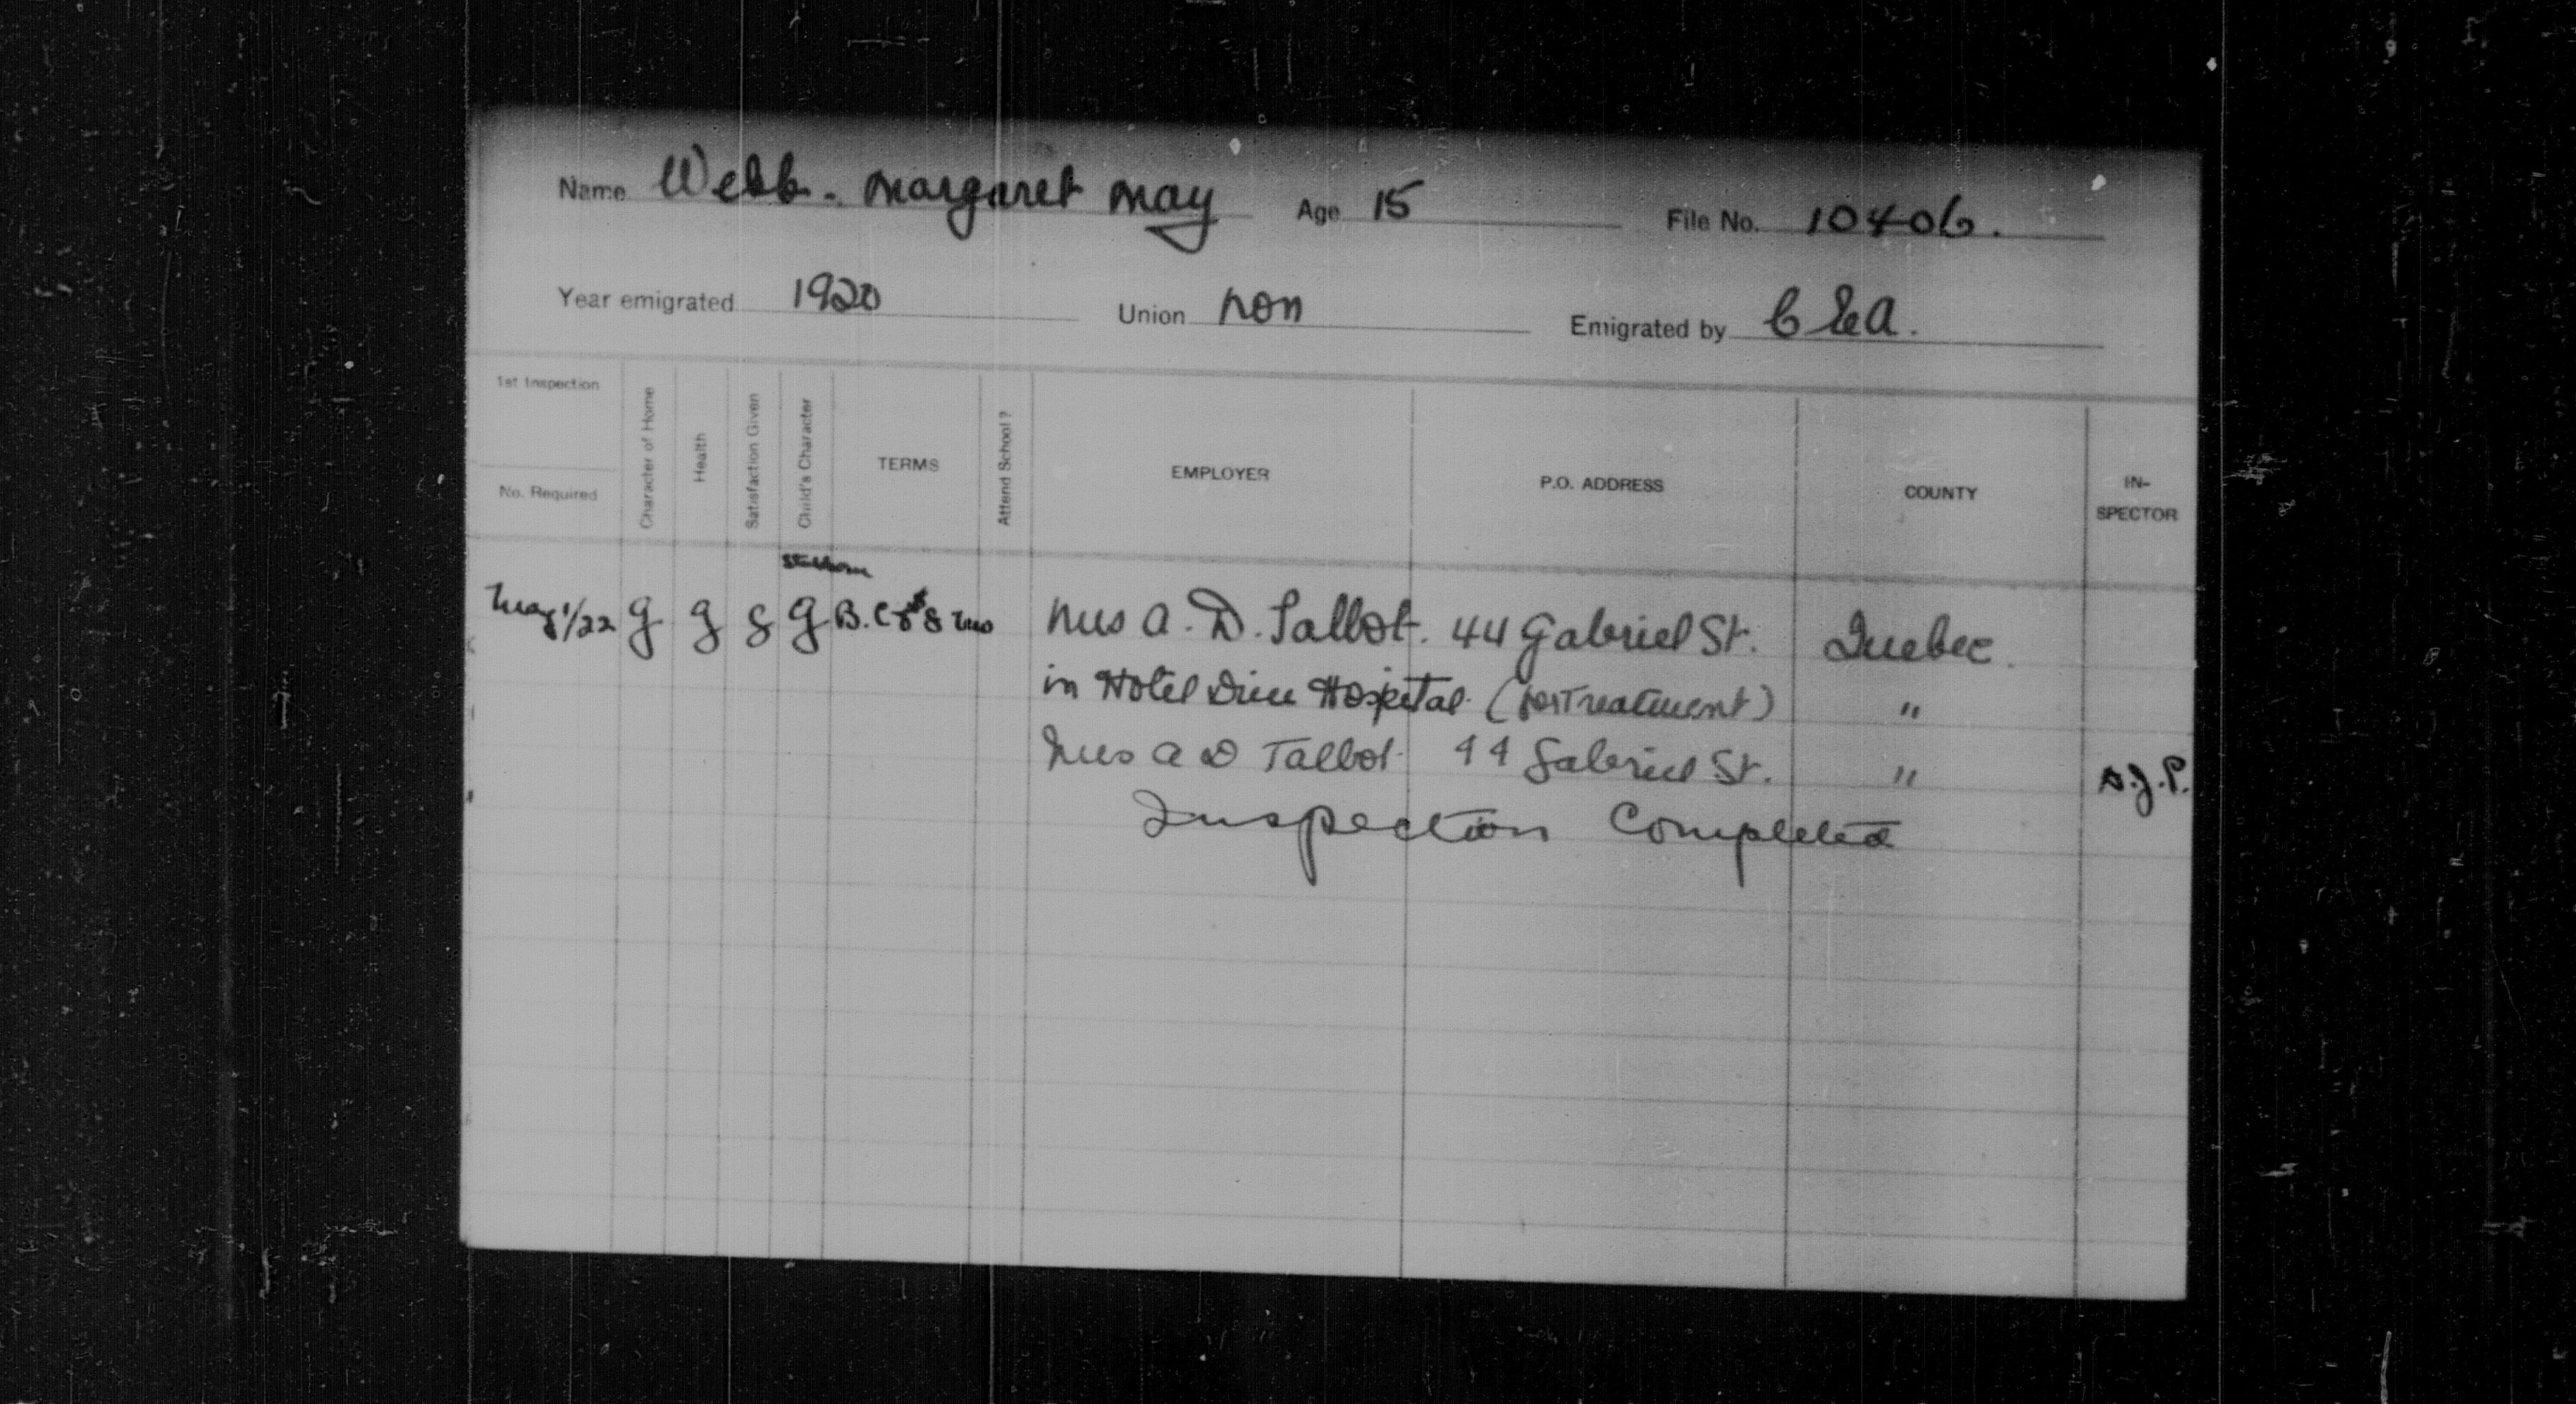 Name Webb - Margaret May Age 15 File No. 10406.
Year emigrated 1920 Union non Emigrated by C E A.
1st Inspection
No. Required
Character of Home
Health
Satisfaction Given
Child's Character
TERMS
Attend School?
EMPLOYER
P.O. ADDRESS
COUNTY
IN-
SPECTOR
Stubborn
May 1/22 g g g g B. C & $8 mo Mrs A. D. Talbot. 44 Gabriel St. Quebec.
in Hotel Dieu Hospital (for Treatment) "
Mrs A D Talbot 44 Gabriel St. " J.P.
Inspection Completed